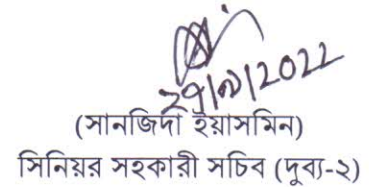 ২৭/৭/2022
(সানজিদা ইয়াসমিন)
সিনিয়র সহকারী সচিব (দুব্য-২)